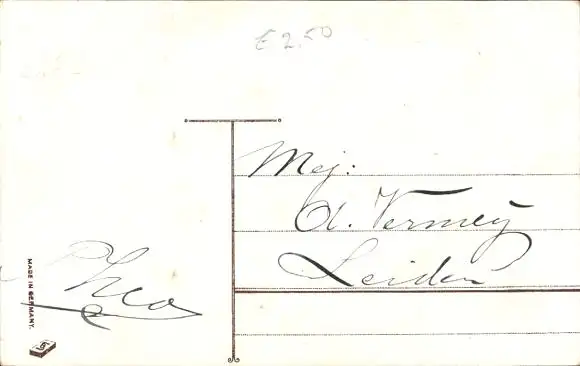 £ 2.50
Mej:
A. Vermey
Leiden
Theo
MADE IN GERMANY.